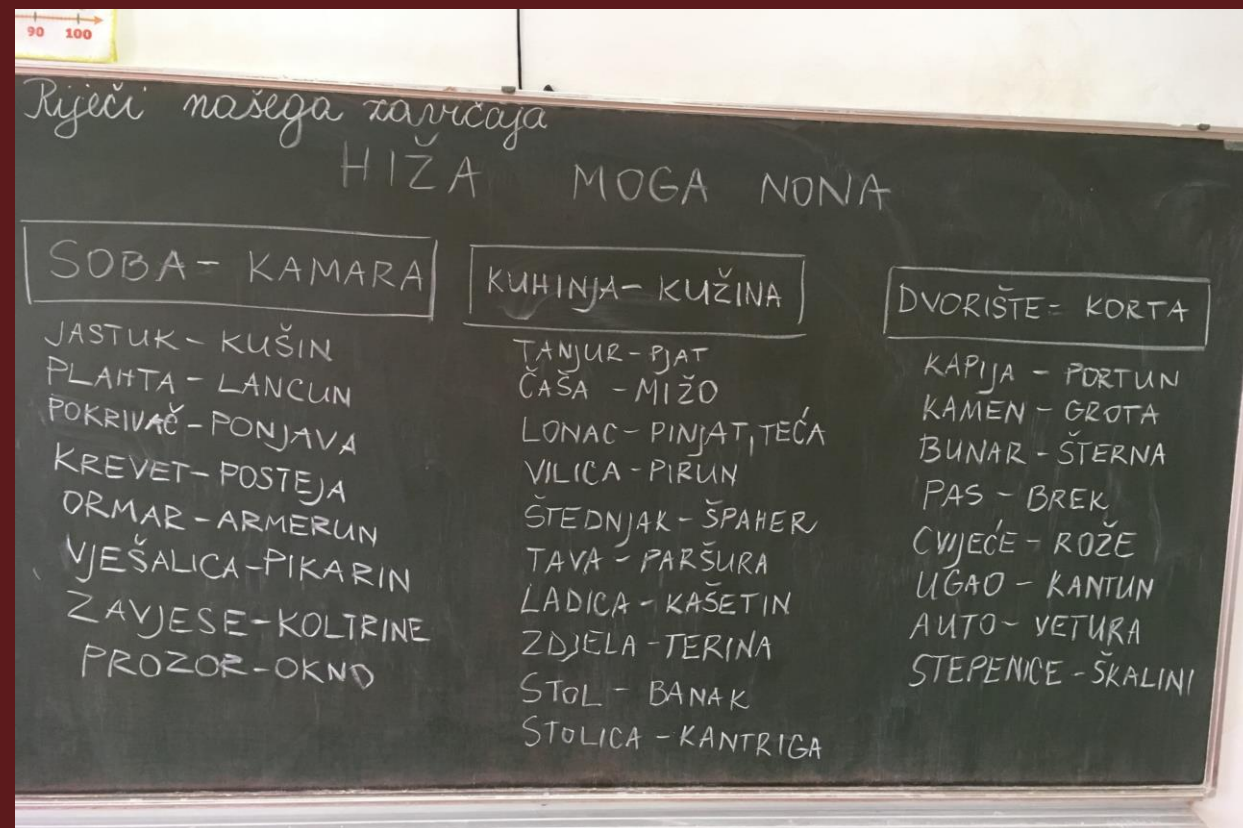 90 100
Riječi našega zavičaja
HIŽA MOGA NONA
SOBA - KAMARA
JASTUK - KUŠIN
PLAHTA - LANCUN
POKRIVAČ - PONJAVA
KREVET - POSTEJA
ORMAR - ARMERUN
VJEŠALICA - PIKARIN
ZAVJESE - KOLTRINE
PROZOR - OKNO
KUHINJA - KUŽINA
TANJUR - PJAT
ČAŠA - MIŽO
LONAC - PINJAT, TEĆA
VILICA - PIRUN
ŠTEDNJAK - ŠPAHER
TAVA - PARŠURA
LADICA - KAŠETIN
ZDJELA - TERINA
STOL - BANAK
STOLICA - KANTRIGA
DVORIŠTE = KORTA
KAPIJA - PORTUN
KAMEN - GROTA
BUNAR - ŠTERNA
PAS - BREK
CVIJEĆE - ROŽE
UGAO - KANTUN
AUTO - VETURA
STEPENICE - ŠKALINI